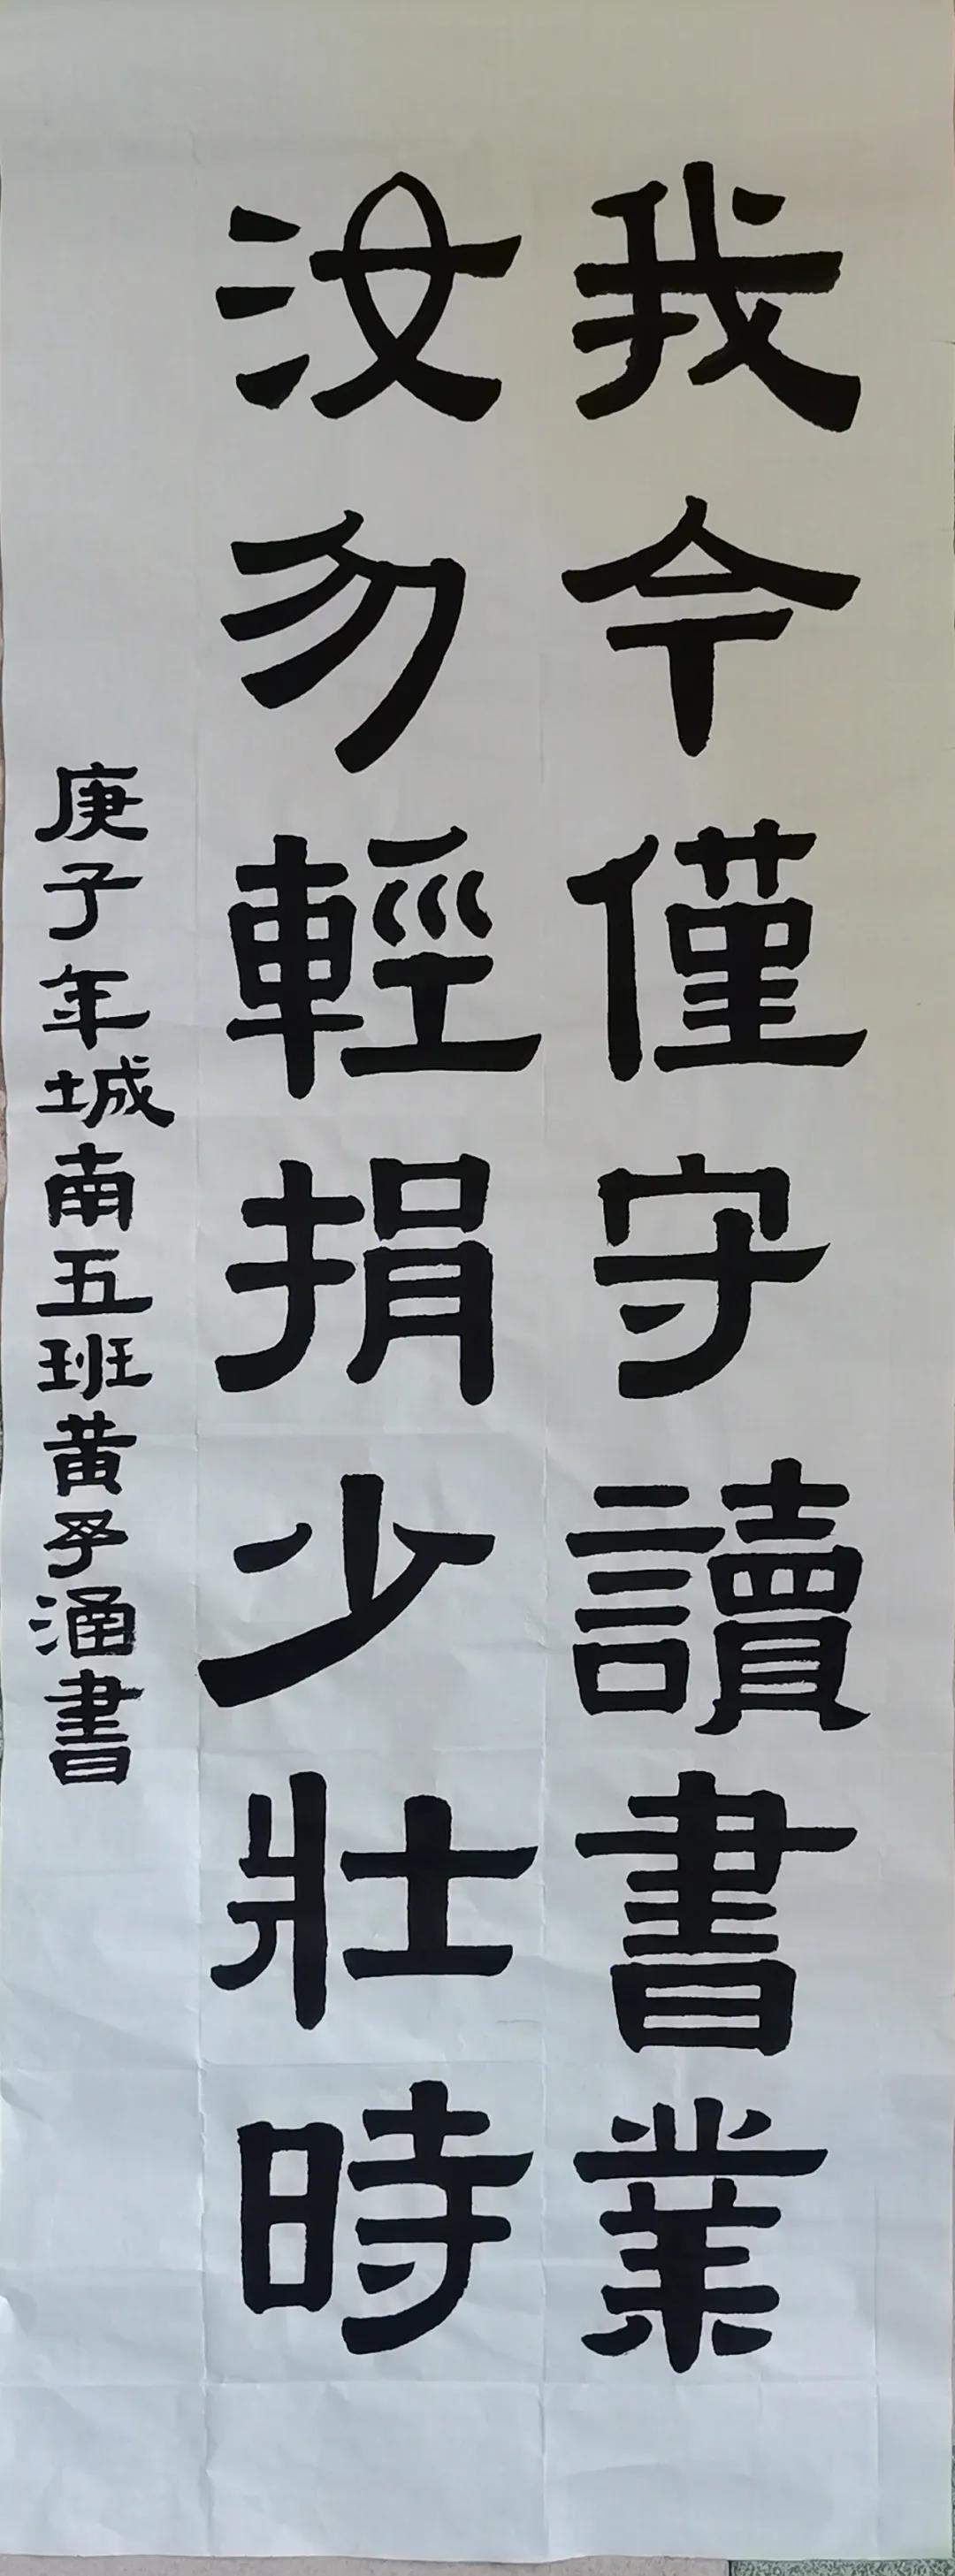 我今僅守讀書業
汝勿輕捐少壯時
庚子年城南五班黄子涵書